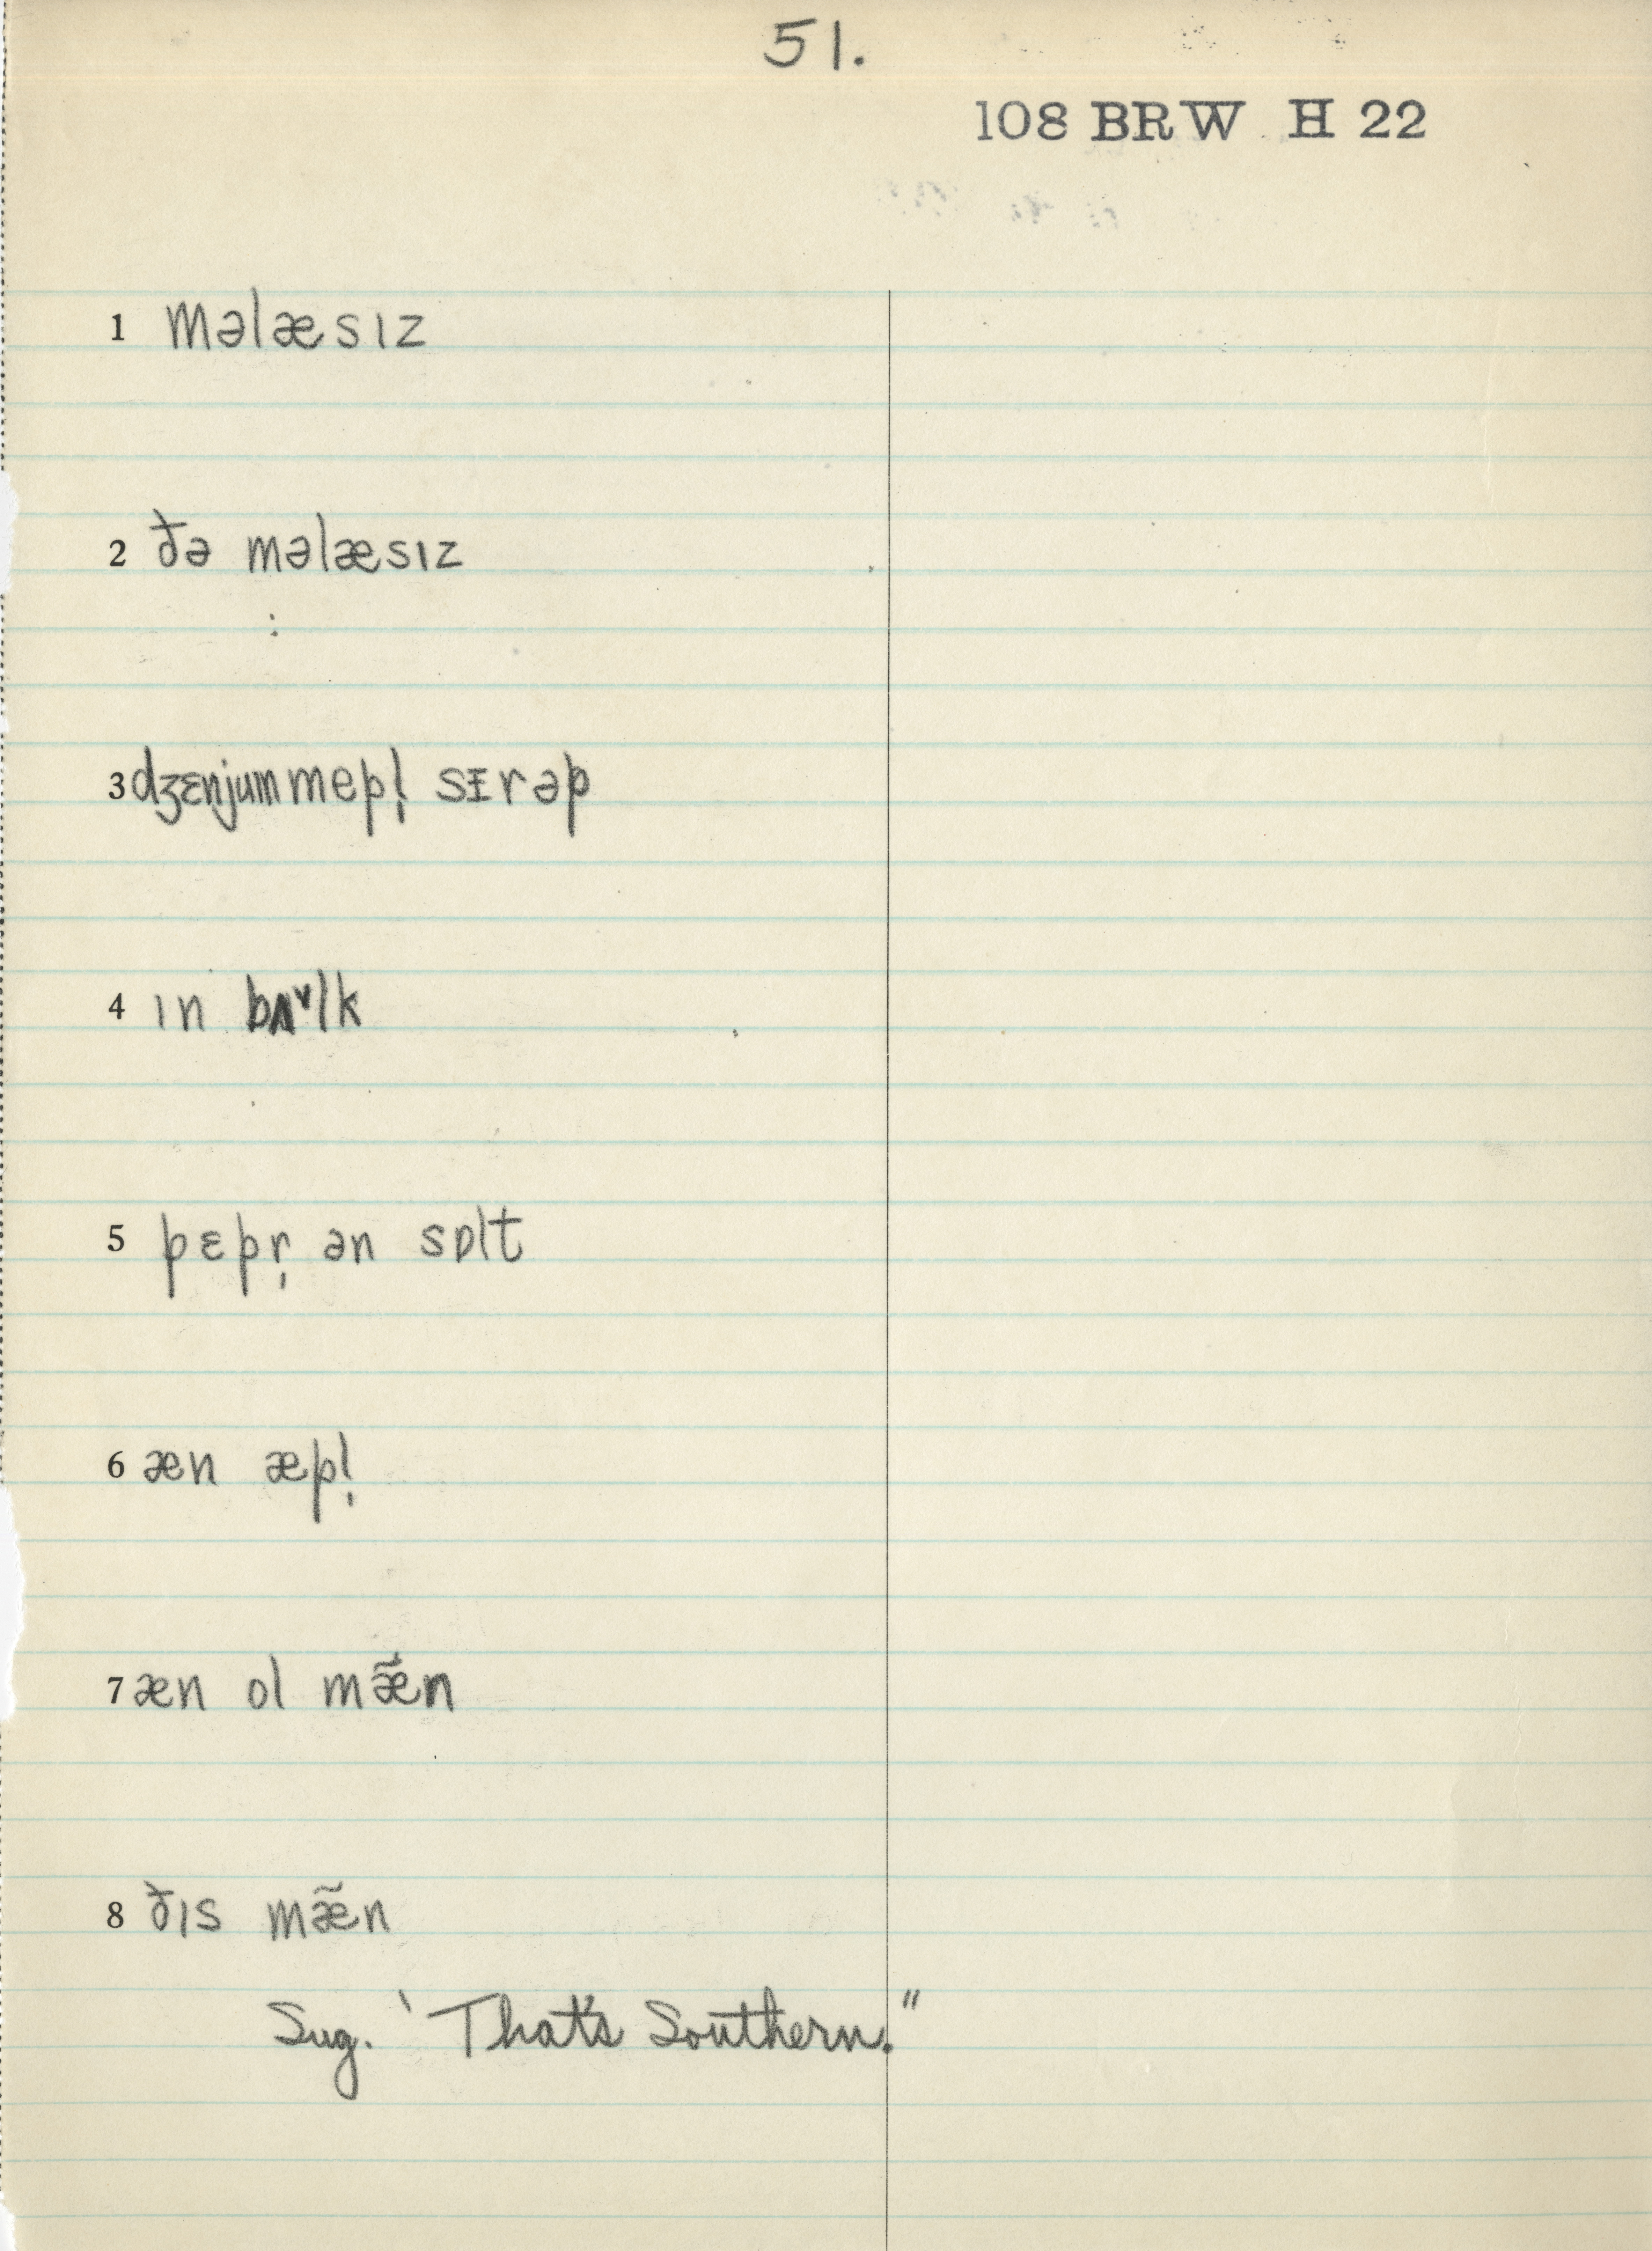 51.
108 BRW H 22
1 məlæsɪz
2 ðə məlæsɪz
3 dʒɛnjummepl̩ sᵻrəp
4 ɪn bʌ˅lk
5 pɛpr̩ ən sɒlt
6 æn æpl̩
7 æn ol mæ̃n
8 ðɪs mæ̃n
Sug. ‘That's Southern."